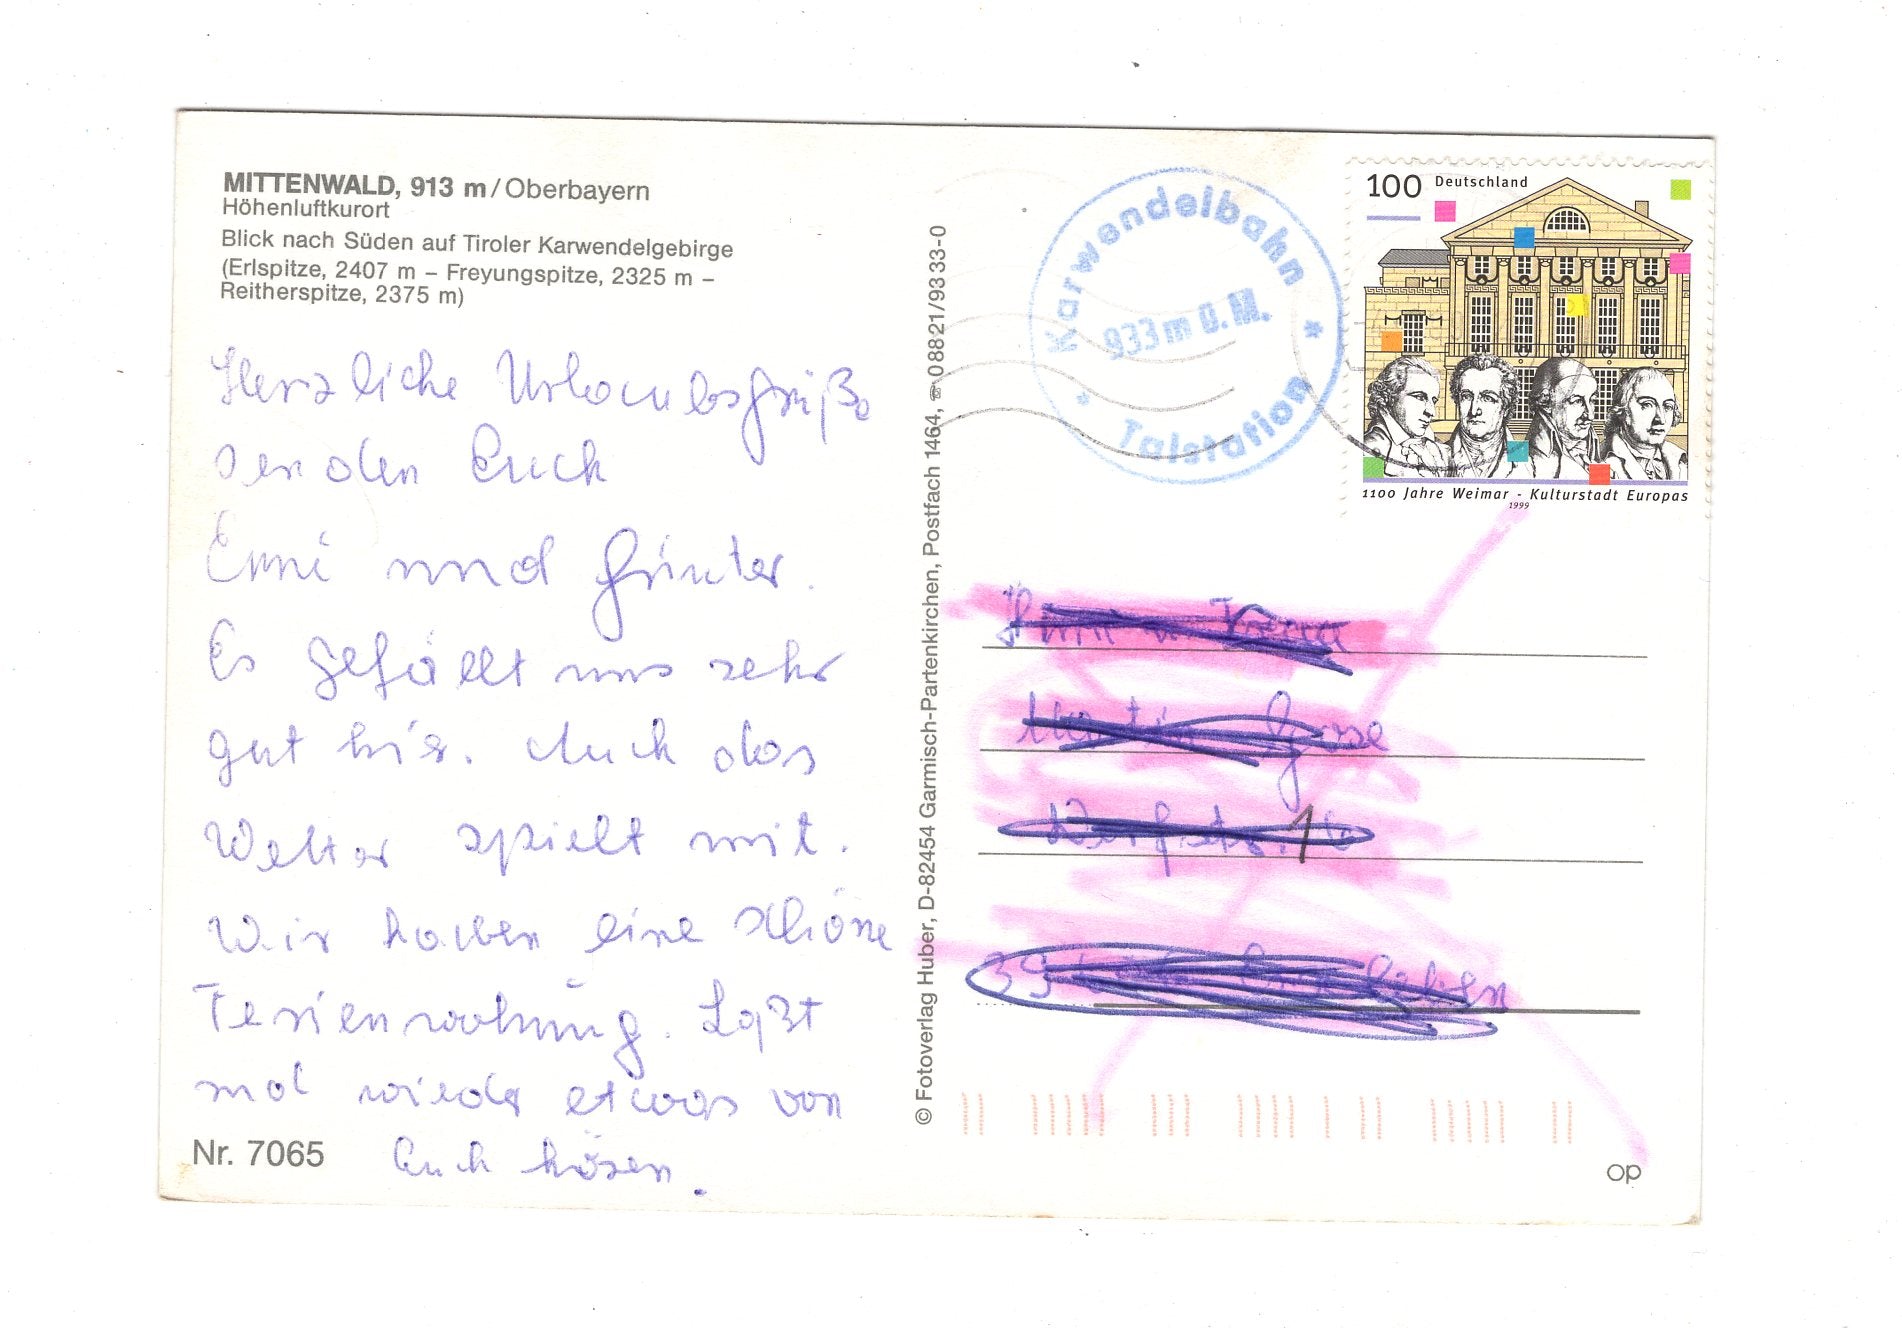 MITTENWALD, 913 m/Oberbayern
Höhenluftkurort
Blick nach Süden auf Tiroler Karwendelgebirge
(Erlspitze, 2407 m – Freyungspitze, 2325 m –
Reitherspitze, 2375 m)
Herzliche Urlaubsgrüße
senden Euch
Enni und Günter.
Es gefällt uns sehr
gut hier. Auch das
Wetter spielt mit.
Wir haben eine schöne
Ferienwohnung. Laßt
mal wieder etwas von
Euch hören.
Nr. 7065
© Fotoverlag Huber, D-82454 Garmisch-Partenkirchen, Postfach 1464, ☏ 08821/9333-0
Karwendelbahn
933 m ü. M.
Talstation
100 Deutschland
1100 Jahre Weimar - Kulturstadt Europas
1999
op